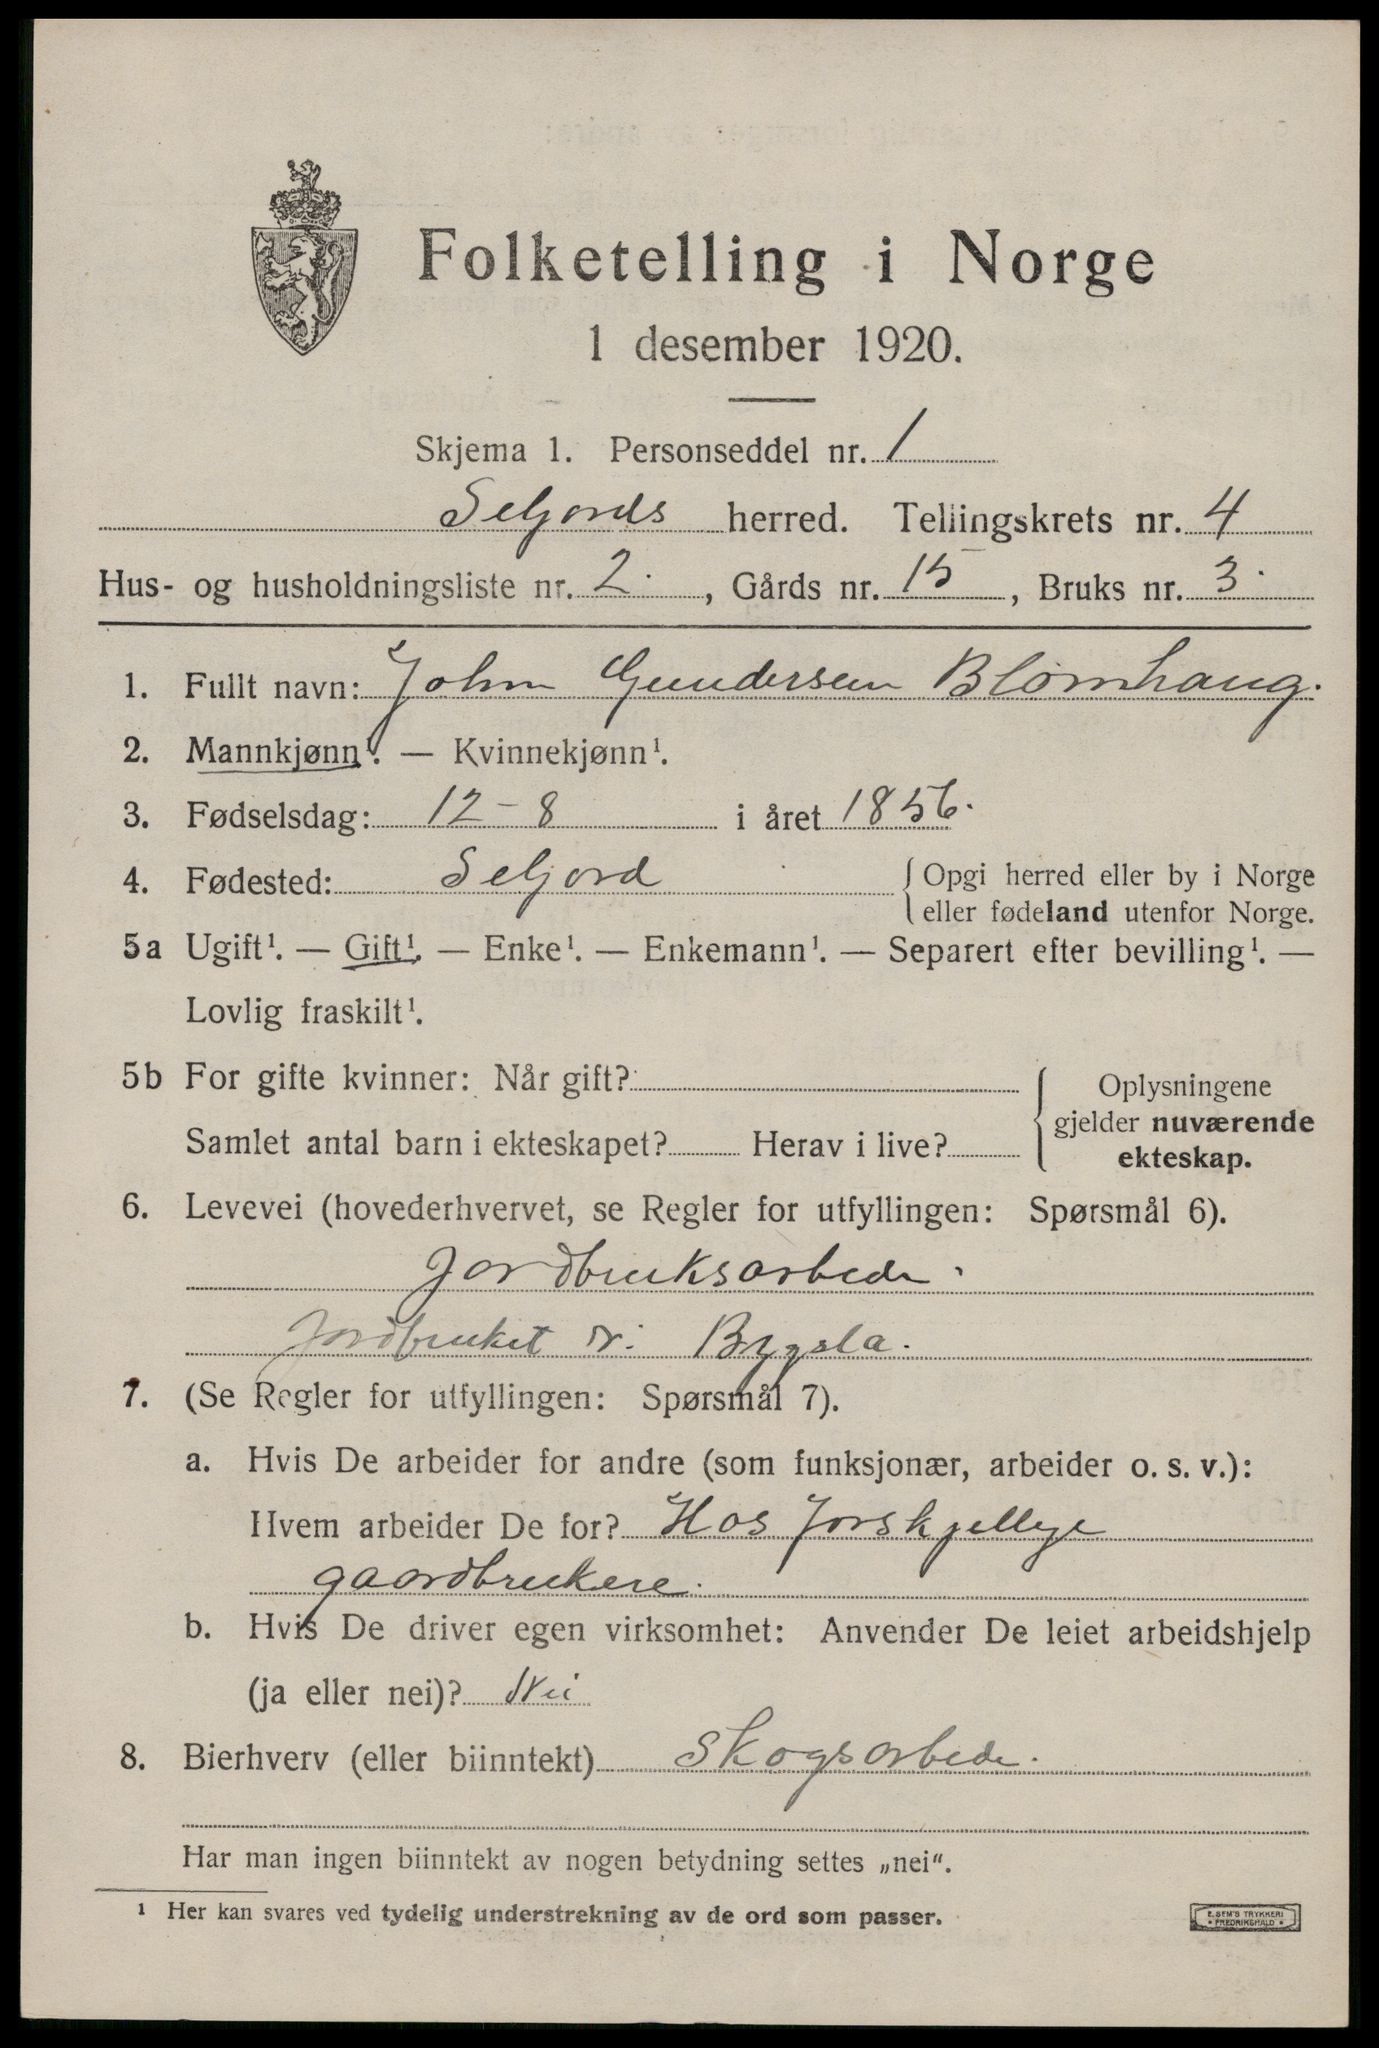 Folketelling i Norge
1 desember 1920.
Skjema 1. Personseddel nr. 1
Seljords herred. Tellingskrets nr. 4
Hus- og husholdningsliste nr. 2. , Gårds nr. 15 , Bruks nr. 3.
1. Fullt navn: John Gundersen Blomhaug.
2. Mannkjønn¹. — Kvinnekjønn¹.
3. Fødselsdag: 12-8 i året 1856.
4. Fødested: Seljord { Opgi herred eller by i Norge
eller fødeland utenfor Norge.
5a Ugift¹. — Gift¹. — Enke¹. — Enkemann¹. — Separert efter bevilling¹. —
Lovlig fraskilt¹.
5b For gifte kvinner: Når gift? { Oplysningene
gjelder nuværende
Samlet antal barn i ekteskapet? Herav i live? ekteskap.
6. Levevei (hovederhvervet, se Regler for utfyllingen: Spørsmål 6).
Jordbruksarbeide.
Jordbruket Bygsla.
7. (Se Regler for utfyllingen: Spørsmål 7).
a. Hvis De arbeider for andre (som funksjonær, arbeider o. s. v.):
Hvem arbeider De for? Hos forskjellige
gaardbrukere.
b. Hvis De driver egen virksomhet: Anvender De leiet arbeidshjelp
(ja eller nei)? Nei
8. Bierhverv (eller biinntekt) Skogsarbeide.
Har man ingen biinntekt av nogen betydning settes „nei“.
¹ Her kan svares ved tydelig understrekning av de ord som passer.
E. SEM'S TRYKKERI
• FREDRIKSHALD •